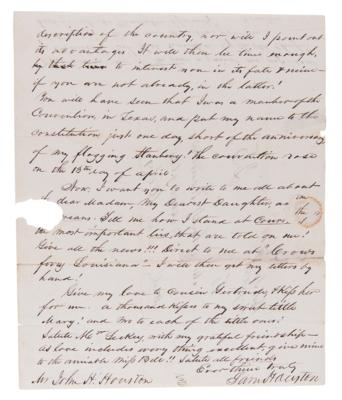 description of the country, nor will I point out
its advantages. It will then be time enough,
by that time to interest you in its fate & mine
if you are not already, in the latter!
You will have seen that I was a member of the
Convention, in Texas, and put my name to the
constitution just one day, short of the anniversary
of my flogging Stanbery! The convention rose
on the 13th day of april.
Now, I want you to write to me all about
dear Madam, My Dearest Daughter, as in
means. Tell me how I stand at the
the most important lies, that are told on me!
Give all the news!!! Direct to me at "Crows
ferry Louisiana" - I will then get my letters by
hand!
Give my love to Cousin Gertrude, & Kiss her
for me. a thousand Kisses to my sweet little
Mary! and two to each of the little ones!
Salute Mrs with my grateful friendship -
as love includes every thing excellent, give mine
to the amiable Miss Bell!! Salute all friends
Ever thine truly
Sam Houston
Mr John H. Houston